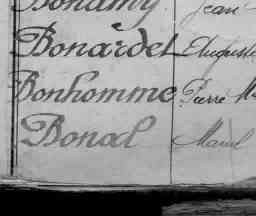 Bonamy Jean
Bonardel Auguste
Bonhomme Pierre
Bonal